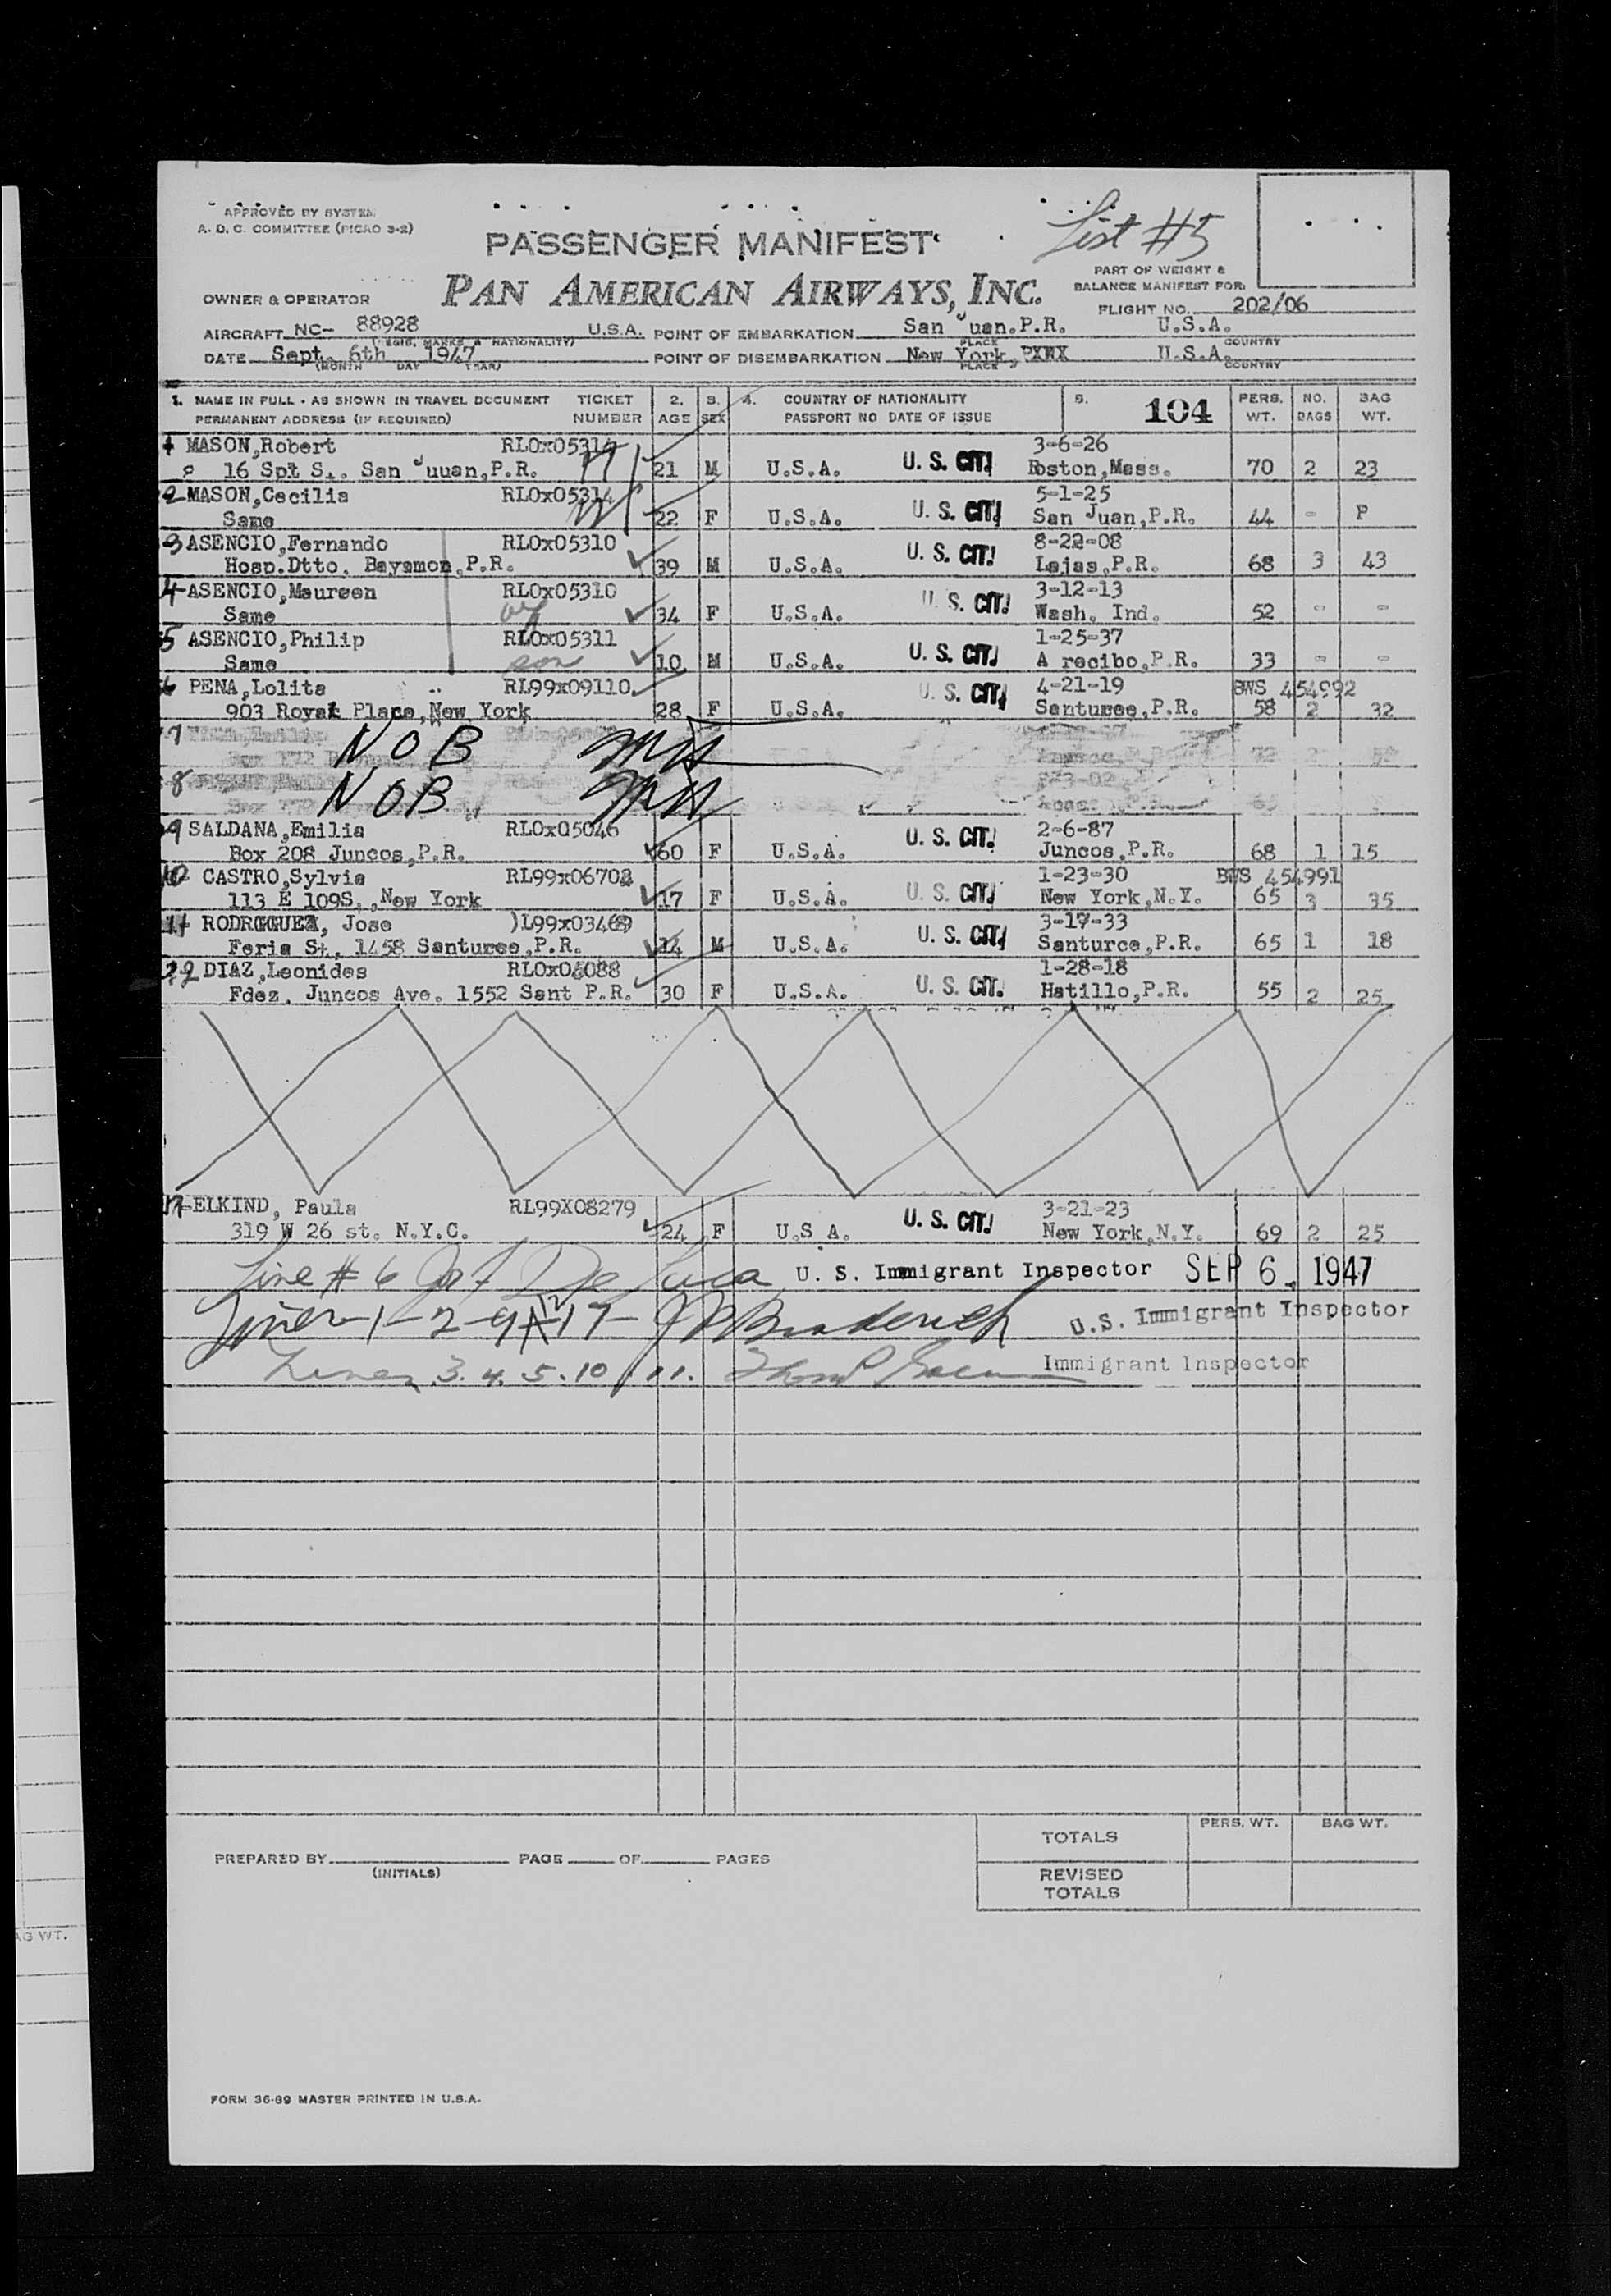 APPROVED BY SYSTEM
A. D. C. COMMITTEE (PICAO 3-2)
List #5
PASSENGER MANIFEST
PAN AMERICAN AIRWAYS, INC.
PART OF WEIGHT &
BALANCE MANIFEST FOR:
OWNER & OPERATOR
FLIGHT NO. 202/06
AIRCRAFT NC- 88928 U.S.A. POINT OF EMBARKATION San Juan.P.R. U.S.A.
(REGIS. MARKS & NATIONALITY) PLACE COUNTRY
DATE Sept. 6th 1947 POINT OF DISEMBARKATION New York,PXRX U.S.A.
(MONTH DAY YEAR) PLACE COUNTRY
1. NAME IN FULL - AS SHOWN IN TRAVEL DOCUMENT TICKET 2. 3. 4. COUNTRY OF NATIONALITY 5. 104 PERS. NO. BAG
PERMANENT ADDRESS (IF REQUIRED) NUMBER AGE SEX PASSPORT NO DATE OF ISSUE WT. BAGS WT.
1 MASON,Robert RLOx05314 3-6-26
16 Spt S.. San Juuan,P.R. 21 M U.S.A. U. S. CIT. Boston,Mass. 70 2 23
2 MASON,Cecilia RLOx05314 5-1-25
Same 22 F U.S.A. U. S. CIT. San Juan,P.R. 44 - P
3 ASENCIO,Fernando RLOx05310 8-22-08
Hosp.Dtto. Bayamon,P.R. 39 M U.S.A. U. S. CIT. Lajas,P.R. 68 3 43
4 ASENCIO,Maureen RLOx05310 3-12-13
Same wf 34 F U.S.A. U. S. CIT. Wash. Ind. 52 - -
5 ASENCIO,Philip RLOx05311 1-25-37
Same son 10 M U.S.A. U. S. CIT. A recibo,P.R. 33 - -
6 PENA,Lolita RL99x09110 4-21-19 BWS 454992
903 Royal Place,New York 28 F U.S.A. U. S. CIT. Santurce,P.R. 58 2 32
7 NOB
8 NOB
9 SALDANA,Emilia RLOx05046 2-6-87
Box 208 Juncos,P.R. 60 F U.S.A. U. S. CIT. Juncos,P.R. 68 1 15
10 CASTRO,Sylvia RL99x06702 1-23-30 BWS 454991
113 E 109S,,New York 17 F U.S.A. U. S. CIT. New York,N.Y. 65 3 35
11 RODRGGUEZ, Jose )L99x03469 3-17-33
Feria St. 1458 Santurce,P.R. 14 M U.S.A. U. S. CIT. Santurce,P.R. 65 1 18
12 DIAZ,Leonides RLOx06088 1-28-18
Fdez. Juncos Ave. 1552 Sant P.R. 30 F U.S.A. U. S. CIT. Hatillo,P.R. 55 2 25
17 ELKIND, Paula RL99X08279 3-21-23
319 W 26 st. N.Y.C. 24 F U.S A. U. S. CIT. New York,N.Y. 69 2 25
Line # 6 De Luca U. S. Immigrant Inspector SEP 6. 1947
Lines-1-2-9-12-17- U.S. Immigrant Inspector
Lines 3. 4. 5. 10 11. Immigrant Inspector
PERS. WT. BAG WT.
TOTALS
PREPARED BY PAGE OF PAGES
(INITIALS)
REVISED
TOTALS
AG WT.
FORM 36-89 MASTER PRINTED IN U.S.A.